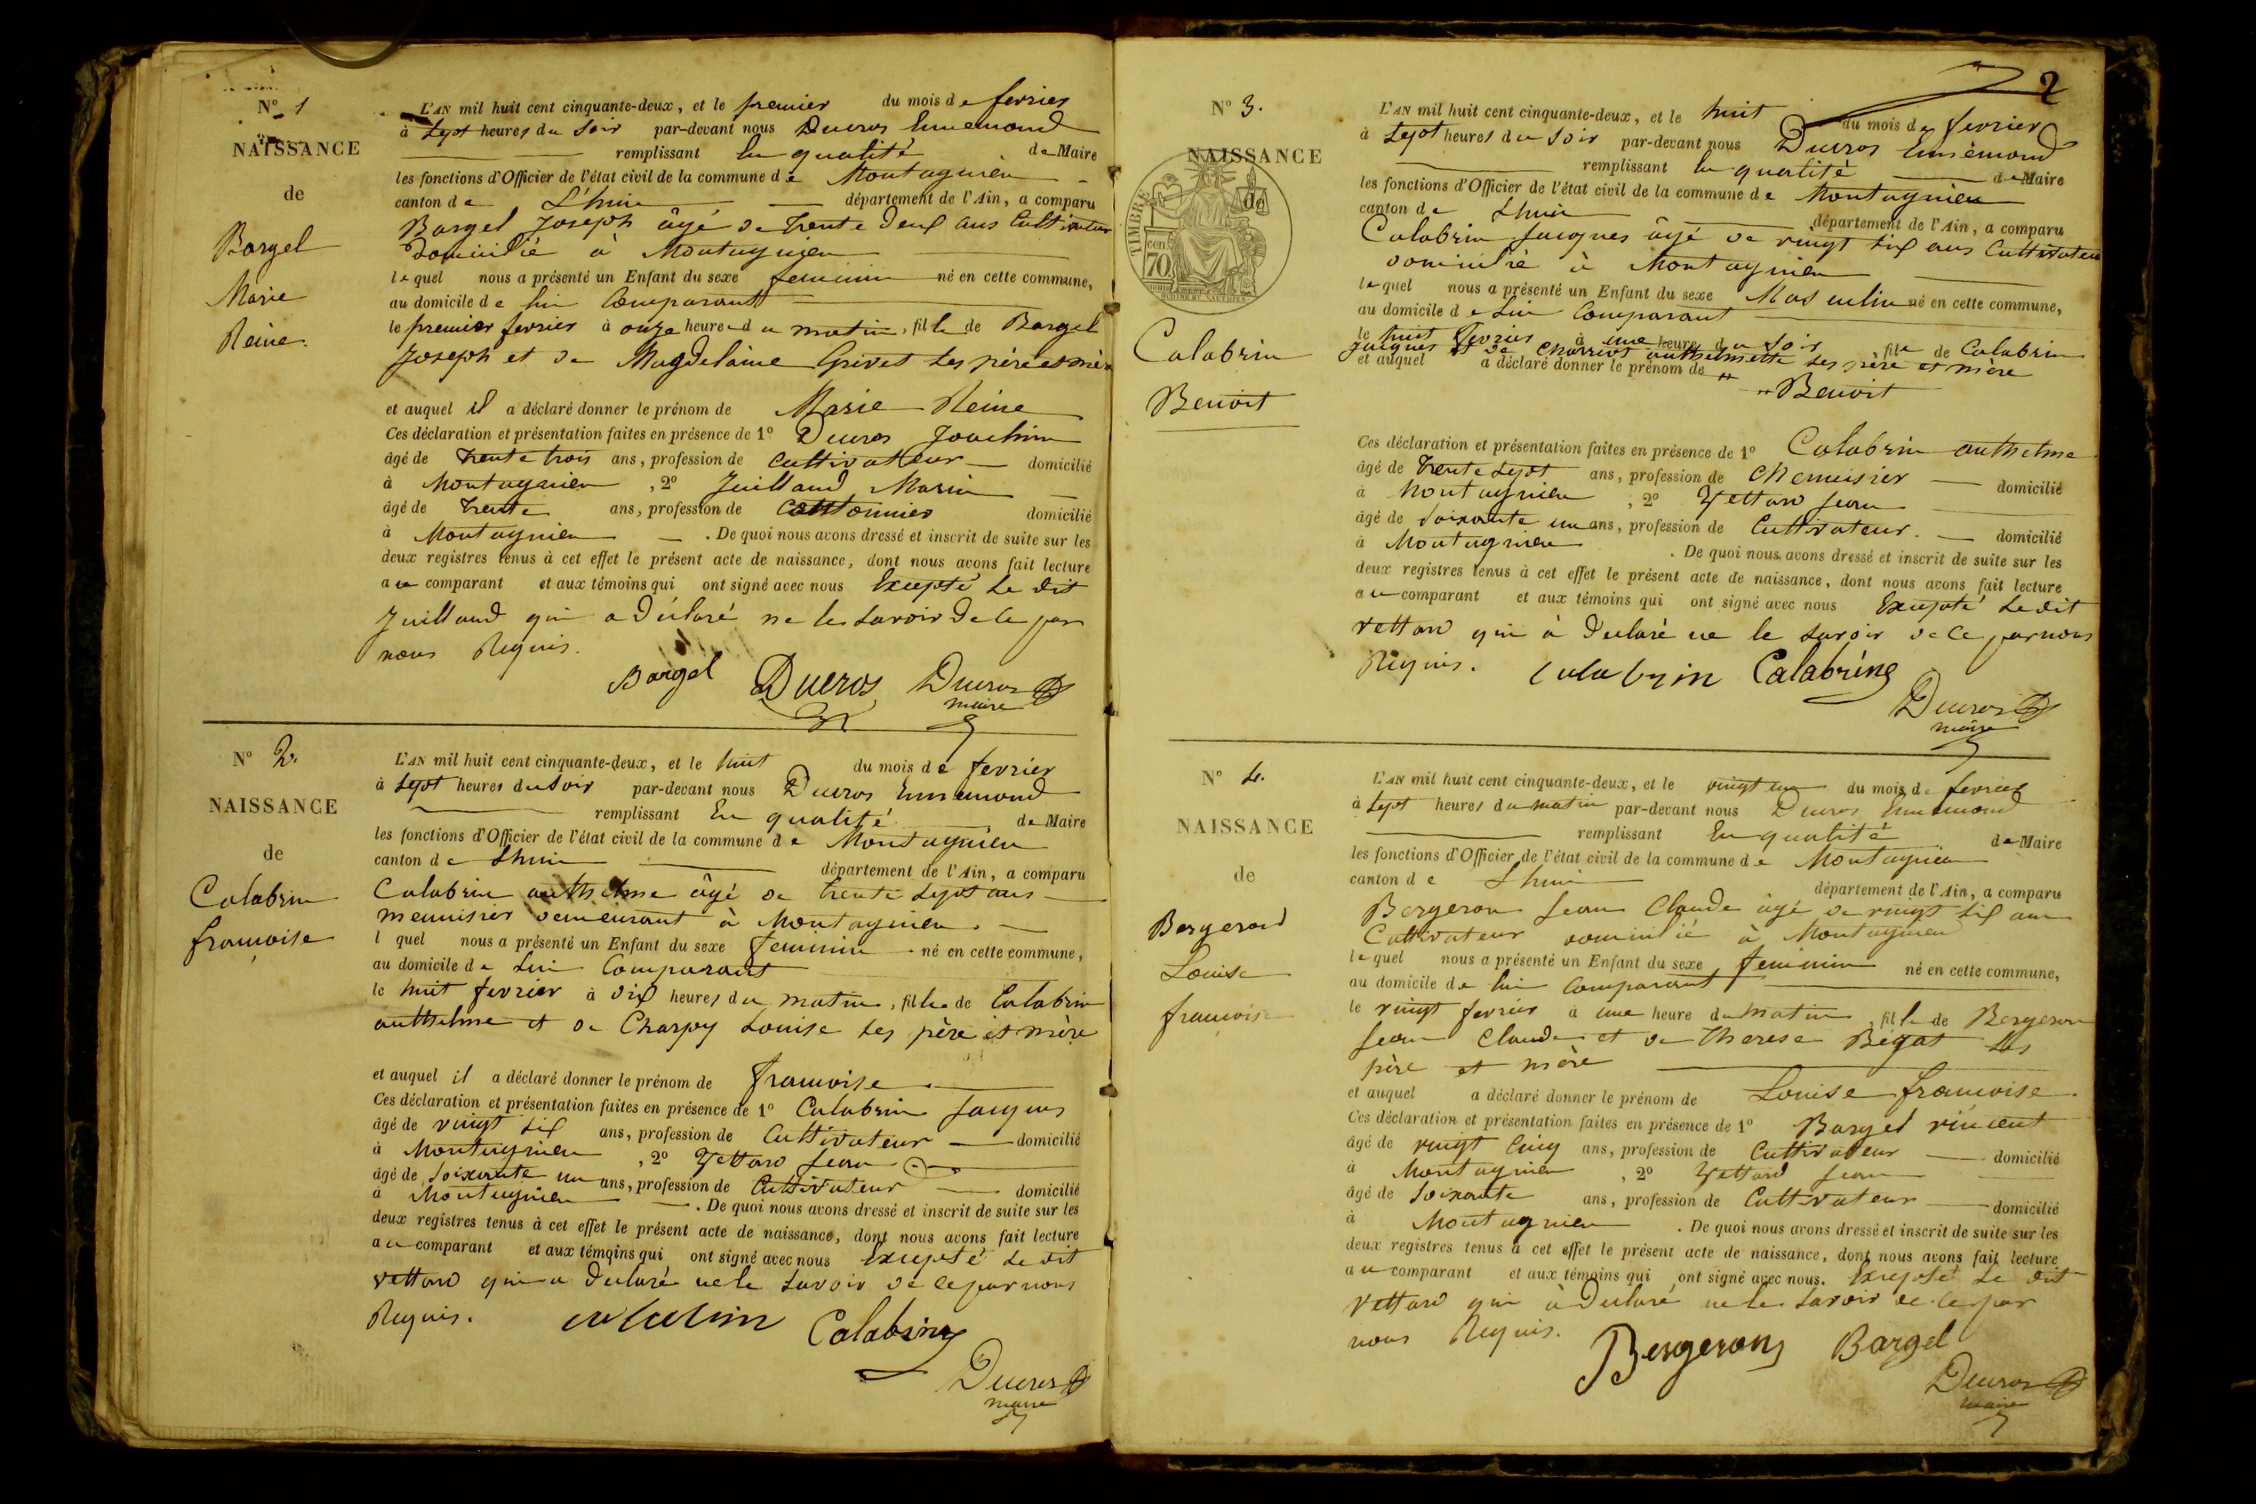 N° 1
NAISSANCE
de
Bargel
Marie
Reine.
L'AN mil huit cent cinquante-deux, et le premier du mois de fevrier
à sept heures du soir par-devant nous Ducros Ennemond
remplissant en qualité de Maire
les fonctions d'Officier de l'état civil de la commune de Montagnieu
canton de L'huis département de l'Ain, a comparu
Bargel Joseph âgé de trente deux ans Cultivateur
domicilié à Montagnieu
lequel nous a présenté un Enfant du sexe feminin né en cette commune,
au domicile de lui Comparant
le premier fevrier à onze heure du matin, fille de Bargel
Joseph et de Magdelaine Grivet ses père et mère
et auquel il a déclaré donner le prénom de Marie Reine
Ces déclaration et présentation faites en présence de 1° Ducros Joachim
âgé de trente trois ans, profession de Cultivateur domicilié
à Montagnieu, 2° Juilland Marin
âgé de trente ans, profession de Cantonnier domicilié
à Montagnieu. De quoi nous avons dressé et inscrit de suite sur les
deux registres tenus à cet effet le présent acte de naissance, dont nous avons fait lecture
au comparant et aux témoins qui ont signé avec nous Excepté Le dit
Juilland qui a déclaré ne le savoir de ce par
nous Requis.
Bargel Ducros Ducros
maire
N° 2.
NAISSANCE
de
Calabrin
francoise
L'AN mil huit cent cinquante-deux, et le huit du mois de fevrier
à sept heures du soir par-devant nous Ducros Ennemond
remplissant En qualité de Maire
les fonctions d'Officier de l'état civil de la commune de Montagnieu
canton de Lhuis département de l'Ain, a comparu
Calabrin anthelme âgé de trente sept ans
menuisier demeurant à Montagnieu.
l quel nous a présenté un Enfant du sexe feminin né en cette commune,
au domicile de Lui Comparant
le huit fevrier à dix heures du matin, fille de Calabrin
anthelme et de Charpy Louise ses père et mère
et auquel il a déclaré donner le prénom de francoise
Ces déclaration et présentation faites en présence de 1° Calabrin Jacques
âgé de vingt six ans, profession de Cultivateur domicilié
à Montagnieu, 2° Vettard Jean
âgé de soixante un ans, profession de Cultivateur domicilié
à Montagnieu. De quoi nous avons dressé et inscrit de suite sur les
deux registres tenus à cet effet le présent acte de naissance, dont nous avons fait lecture
au comparant et aux témoins qui ont signé avec nous Excepté Le dit
vettard qui a declaré ne le savoir de ce par nous
Requis. Calabrin
Ducros
maire
2
N° 3.
NAISSANCE
de
TIMBRE
70
Calabrin
Benoit
L'AN mil huit cent cinquante-deux, et le huit du mois de fevrier
à sept heures du soir par-devant nous Ducros Ennemond
remplissant En qualité de Maire
les fonctions d'Officier de l'état civil de la commune de Montagnieu
canton de Lhuis département de l'Ain, a comparu
Calabrin Jacques âgé de vingt six ans Cultivateur
domicilié à Montagnieu
lequel nous a présenté un Enfant du sexe Masculin né en cette commune,
au domicile de Lui Comparant
le huit fevrier à une heure du soir fils de Calabrin
Jacques et de anthelmette ses père et mère
et auquel a déclaré donner le prénom de
Benoit
Ces déclaration et présentation faites en présence de 1° Calabrin anthelme
âgé de trente sept ans, profession de Menuisier domicilié
à Montagnieu, 2° Vettard Jean
âgé de soixante un ans, profession de Cultivateur. domicilié
à Montagnieu. De quoi nous avons dressé et inscrit de suite sur les
deux registres tenus à cet effet le présent acte de naissance, dont nous avons fait lecture
au comparant et aux témoins qui ont signé avec nous Excepté Le dit
vettard qui à declaré ne le savoir de ce par nous
Requis. Calabrin Calabrin
Ducros
maire
N° 4.
NAISSANCE
de
Bergeron
Louise
francoise
L'AN mil huit cent cinquante-deux, et le vingt un du mois de fevrier
à sept heures du matin par-devant nous Ducros Ennemond
remplissant En qualité de Maire
les fonctions d'Officier de l'état civil de la commune de Montagnieu
canton de Lhuis département de l'Ain, a comparu
Bergeron Jean Claude âgé de vingt six ans
Cultivateur domicilié à Montagnieu
lequel nous a présenté un Enfant du sexe feminin né en cette commune,
au domicile de lui Comparant
le vingt fevrier à une heure du matin, fille de Bergeron
Jean Claude et de Therese Bégat ses
père et mère
et auquel a déclaré donner le prénom de Louise francoise.
Ces déclaration et présentation faites en présence de 1° Bargel vincent
âgé de vingt cinq ans, profession de Cultivateur domicilié
à Montagnieu, 2° Vettard Jean
âgé de soixante ans, profession de Cultivateur domicilié
à Montagnieu. De quoi nous avons dressé et inscrit de suite sur les
deux registres tenus à cet effet le présent acte de naissance, dont nous avons fait lecture
au comparant et aux témoins qui ont signé avec nous. Excepté Le dit
Vettard qui à declaré ne le savoir de ce par
nous Requis. Bergeron Bargel
Ducros
maire